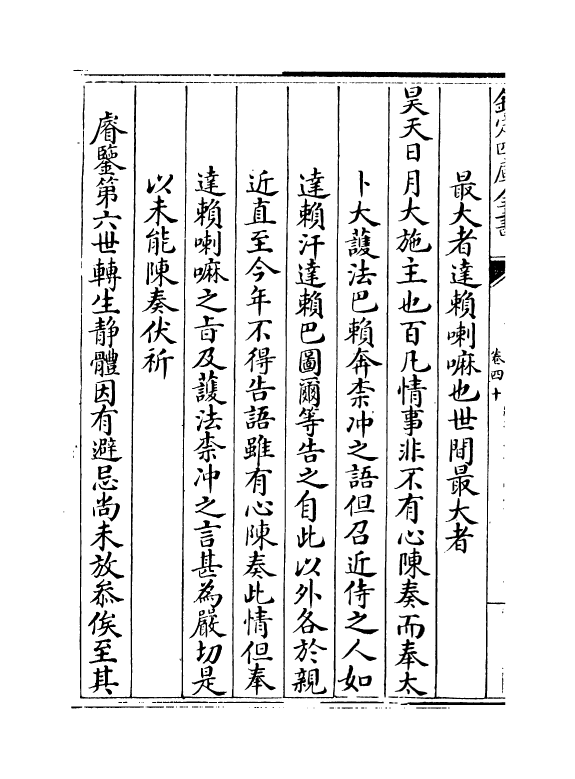 欽定四庫全書
卷四十
最大者達賴喇嘛也世間最大者
昊天日月大施主也百凡情事非不有心陳奏而奉太
卜大䕶法巴賴奔柰冲之語但召近侍之人如
達賴汗達賴巴圖爾等告之自此以外各於親
近直至今年不得告語雖有心陳奏此情但奉
達賴喇嘛之㫖及䕶法柰冲之言甚為嚴切是
以未能陳奏伏祈
睿鑒第六世轉生静體因有避忌尚未放叅俟至其